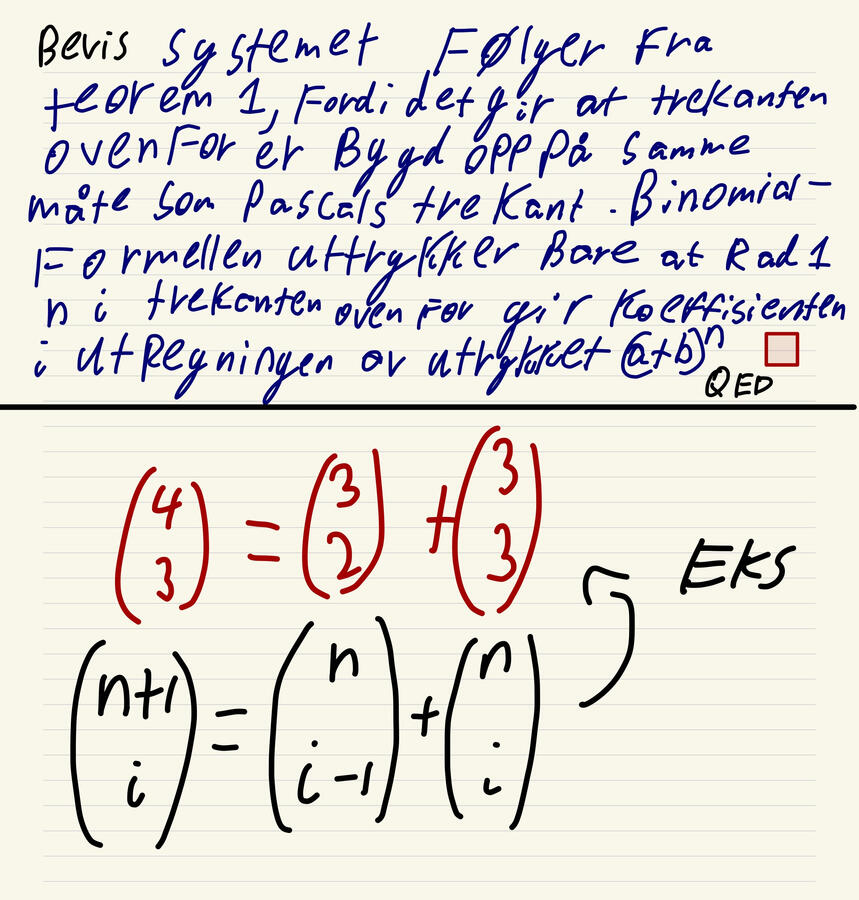 Bevis systemet Følger Fra
teorem 1, Fordi det gir at trekanten
ovenFor er Bygd opp på samme
måte som Pascals trekant. Binomial-
Formellen uttrykker Bare at Rad 1
n i trekanten ovenFor gir Koeffisienten
i utregningen av uttrykket (a+b)^n
QED
(4 3) = (3 2) + (3 3)
EKS
(n+1 i) = (n i-1) + (n i)